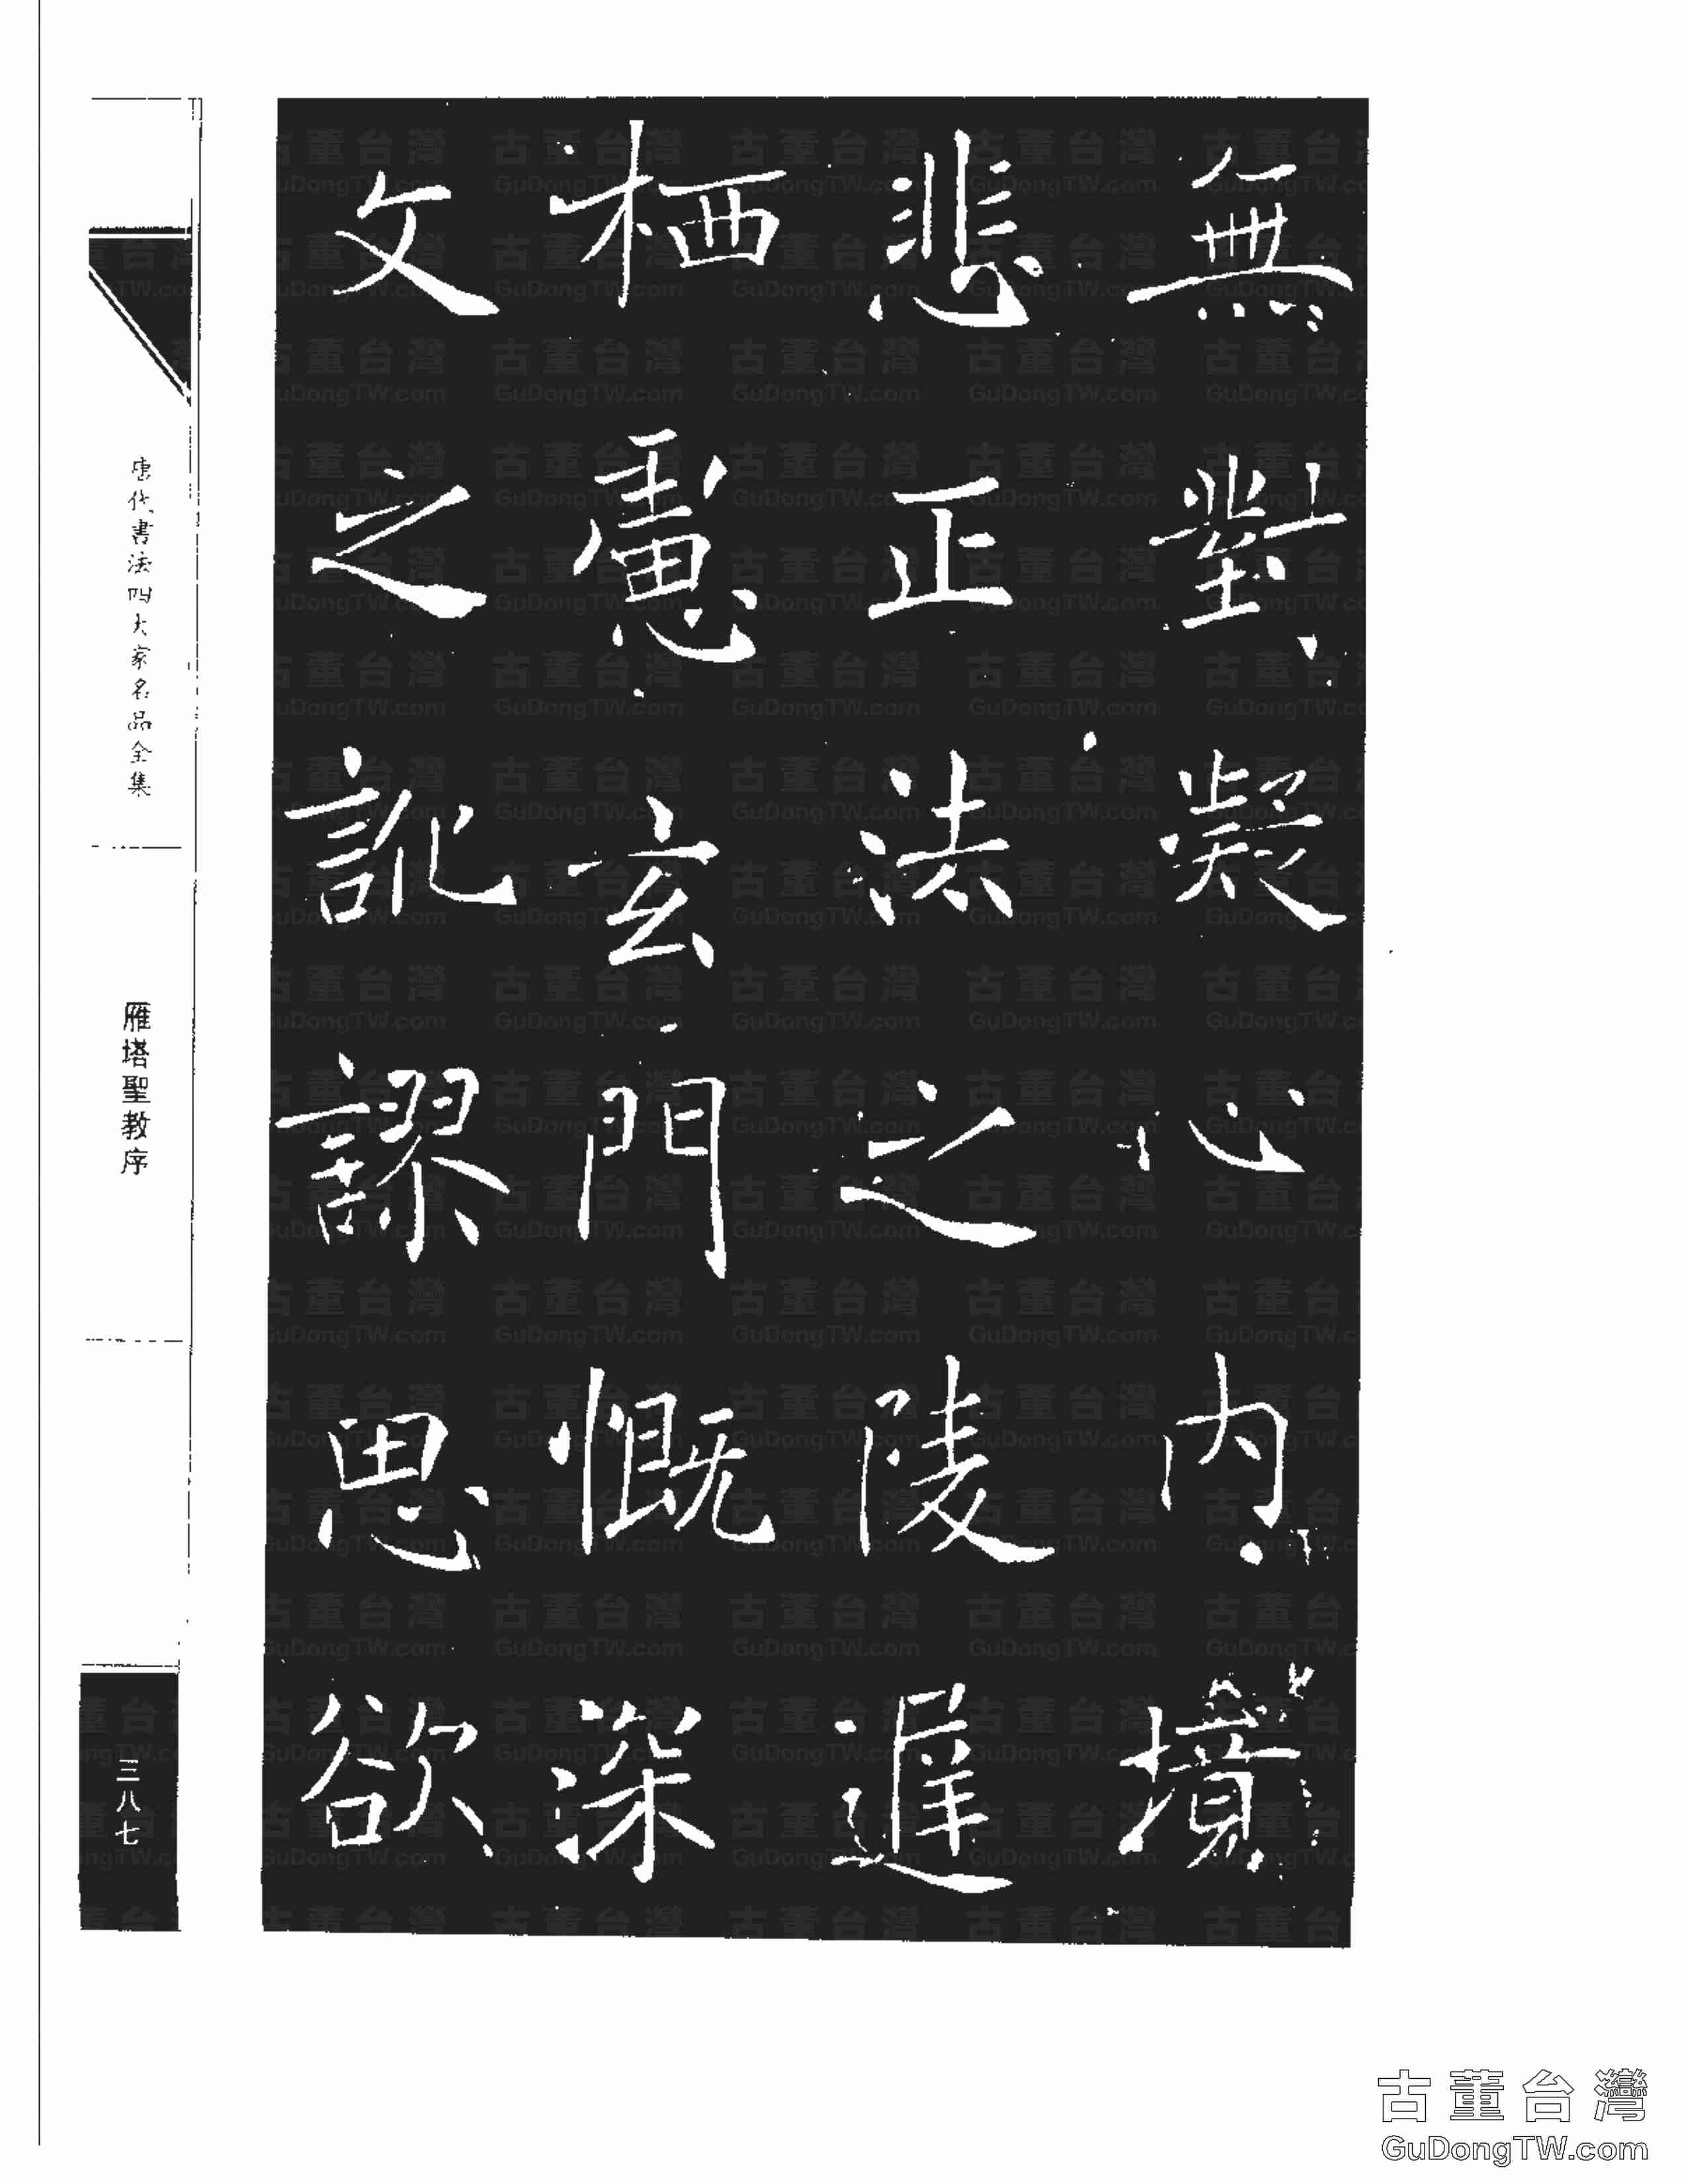 無對凝心內境
悲正法之陵遲
栖慮玄門慨深
文之訛謬思欲
唐代書法四大家名品全集
雁塔聖教序
三八七
古董台灣
GuDongTW.com